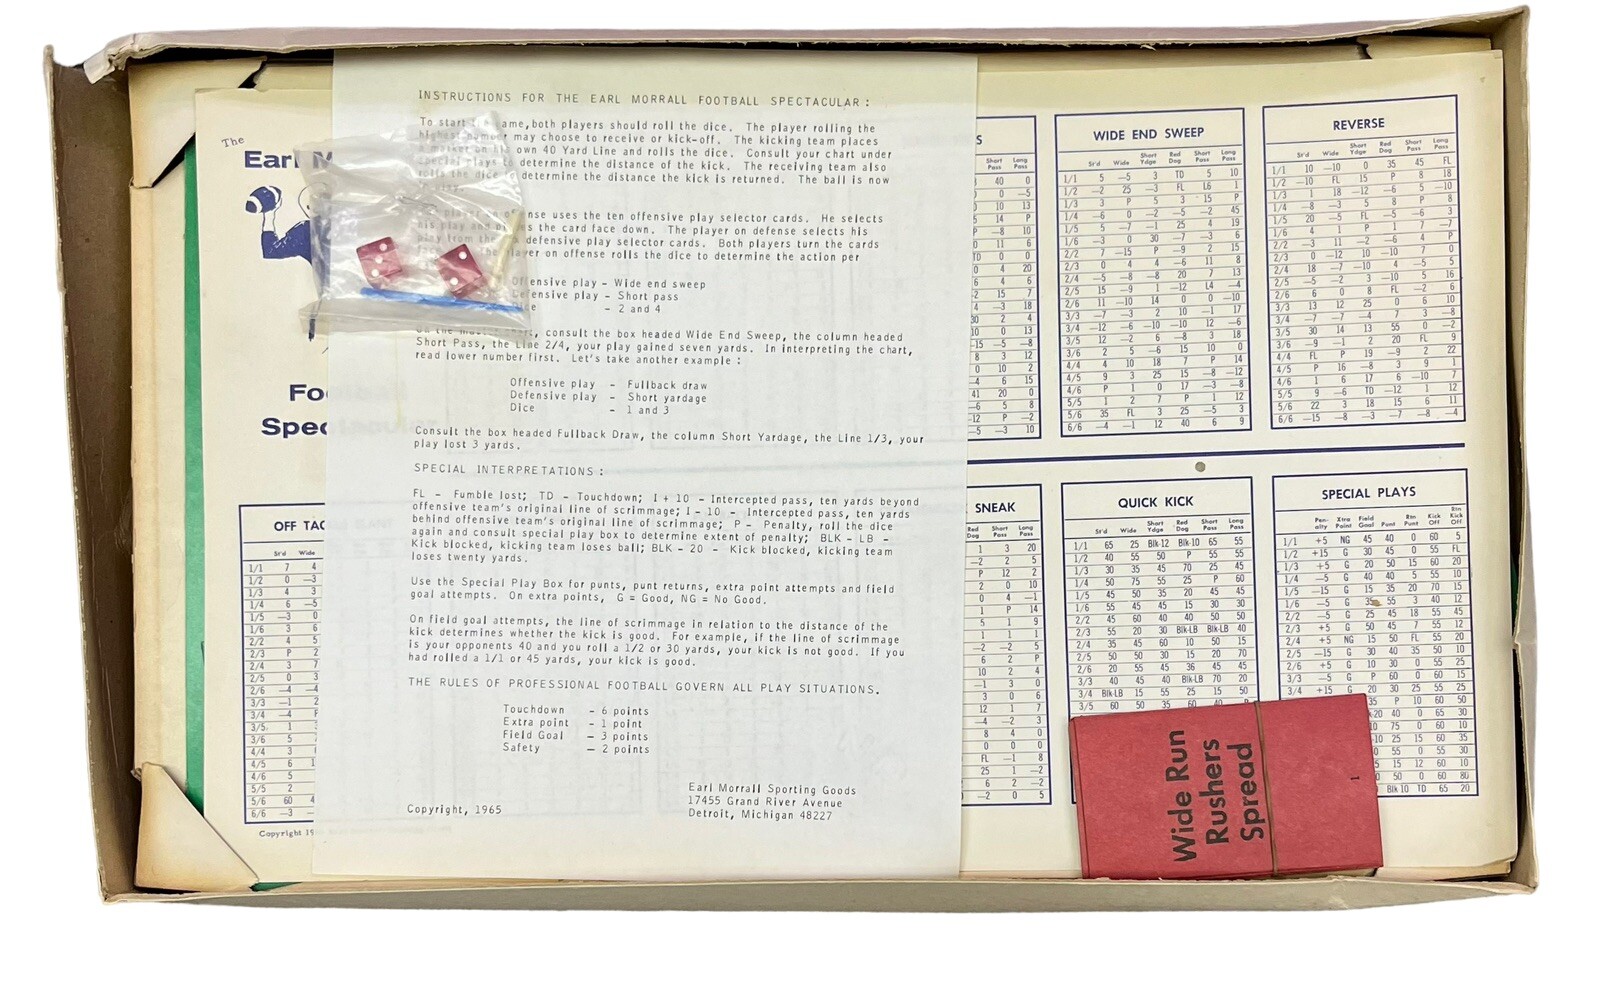 INSTRUCTIONS FOR THE EARL MORRALL FOOTBALL SPECTACULAR:
To start ame, both players should roll the dice. The player rolling the
may choose to receive or kick-off. The kicking team places
own 40 Yard Line and rolls the dice. Consult your chart under
special plays to determine the distance of the kick. The receiving team also
rolls the dice determine the distance the kick is returned. The ball is now
uses the ten offensive play selector cards. He selects
his play and the card face down. The player on defense selects his
play from the defensive play selector cards. Both players turn the cards
on offense rolls the dice to determine the action per
Offensive play - Wide end sweep
Defensive play - Short pass
- 2 and 4
consult the box headed Wide End Sweep, the column headed
Short Pass, the Line 2/4, your play gained seven yards. In interpreting the chart,
read lower number first. Let's take another example:
Offensive play - Fullback draw
Defensive play - Short yardage
Dice - 1 and 3
Consult the box headed Fullback Draw, the column Short Yardage, the Line 1/3, your
play lost 3 yards.
SPECIAL INTERPRETATIONS:
FL - Fumble lost; TD - Touchdown; I + 10 - Intercepted pass, ten yards beyond
offensive team's original line of scrimmage; I - 10 - Intercepted pass, ten yards
behind offensive team's original line of scrimmage; P - Penalty, roll the dice
again and consult special play box to determine extent of penalty; BLK - LB -
Kick blocked, kicking team loses ball; BLK - 20 - Kick blocked, kicking team
loses twenty yards.
Use the Special Play Box for punts, punt returns, extra point attempts and field
goal attempts. On extra points, G = Good, NG = No Good.
On field goal attempts, the line of scrimmage in relation to the distance of the
kick determines whether the kick is good. For example, if the line of scrimmage
is your opponents 40 and you roll a 1/2 or 30 yards, your kick is not good. If you
had rolled a 1/1 or 45 yards, your kick is good.
THE RULES OF PROFESSIONAL FOOTBALL GOVERN ALL PLAY SITUATIONS.
Touchdown - 6 points
Extra point - 1 point
Field Goal - 3 points
Safety - 2 points
Copyright, 1965
Earl Morrall Sporting Goods
17455 Grand River Avenue
Detroit, Michigan 48227
The
Earl M
Fo
Spec
OFF TAC
Str'd Wide
1/1 7 4
1/2 0 -3
1/3 4 3
1/4 6 -5
1/5 -3 0
1/6 3 6
2/2 4 5
2/3 P 2
2/4 3 7
2/5 0 3
2/6 -4 -4
3/3 -1 2
3/4 -4
3/5 1
3/6 5
4/4 3
4/5 6
4/6 5
5/5 2
5/6 60 4
6/6 -3
Copyright 19
WIDE END SWEEP
Str'd Wide Short Ydge Red Dog Short Pass Long Pass
1/1 5 -5 3 TD 5 10
1/2 -2 25 -3 FL L6 1
1/3 3 P 5 3 15 P
1/4 -6 0 -2 -5 -2 45
1/5 5 -7 -1 25 4 19
1/6 -3 0 30 -7 -3 6
2/2 7 -15 P -9 2 15
2/3 0 4 4 -6 11 8
2/4 -5 -8 -8 20 7 13
2/5 15 -9 1 -12 L4 -4
2/6 11 -10 14 0 0 -10
3/3 -7 -3 2 10 -1 17
3/4 -12 -6 -10 -10 12 -6
3/5 12 -2 6 -8 3 18
3/6 2 5 -6 15 10 0
4/4 4 10 18 7 P 14
4/5 9 3 25 15 -8 -12
4/6 P 1 0 17 -3 -8
5/5 1 2 7 P 1 12
5/6 35 FL 3 25 -5 3
6/6 -4 -1 12 40 6 9
REVERSE
Str'd Wide Short Ydge Red Dog Short Pass Long Pass
1/1 10 -10 0 35 45 FL
1/2 -10 FL 15 P 8 18
1/3 1 18 -12 -6 5 -10
1/4 -8 -3 5 8 P 8
1/5 20 -5 FL -5 -6 3
1/6 4 1 P 1 7 -7
2/2 -3 11 -2 -6 4 P
2/3 0 -12 10 -10 7 0
2/4 18 -7 -10 4 -5 5
2/5 -5 -2 3 -10 5 16
2/6 6 0 8 FL -2 6
3/3 13 12 25 0 6 10
3/4 -7 -7 -4 7 3 -8
3/5 30 14 13 55 0 -2
3/6 -9 -1 2 20 FL 9
4/4 FL P 19 -9 2 22
4/5 P 16 -8 3 9 1
4/6 1 6 17 6 -10 7
5/5 9 -6 TD -12 1 12
5/6 22 3 18 15 6 11
6/6 -15 -8 -3 -7 -8 -4
SNEAK
Red Dog Short Pass Long Pass
QUICK KICK
Str'd Wide Short Ydge Red Dog Short Pass Long Pass
1/1 65 25 Blk-12 Blk-10 65 55
1/2 40 55 50 P 55 55
1/3 30 35 45 70 25 45
1/4 50 75 55 25 P 60
1/5 45 50 35 20 45 45
1/6 55 45 45 15 30 30
2/2 45 60 40 40 50 50
2/3 55 20 30 Blk-LB Blk-LB 40
2/4 35 45 60 10 50 15
2/5 50 50 30 15 20 70
2/6 20 55 45 36 45 45
3/3 40 45 40 Blk-LB 70 20
3/4 Blk-LB 15 55 25 15 50
3/5 60 50 35 60 40
SPECIAL PLAYS
Pen- alty Xtra Point Field Goal Punt Rtn Punt Kick Off Rtn Kick Off
1/1 +5 NG 45 40 0 60 5
1/2 +15 G 30 45 0 55 FL
1/3 +5 G 20 50 15 60 20
1/4 -5 G 40 40 5 55 10
1/5 -15 G 15 35 20 70 15
1/6 -5 G 35 55 3 40 12
2/2 -5 G 25 45 18 55 45
2/3 +5 G 50 45 7 55 12
2/4 +5 NG 15 50 FL 55 20
2/5 -15 G 30 40 35 50 10
2/6 +5 G 10 30 0 55 25
3/3 -5 G P 60 0 60 15
3/4 +15 G 20 30 25 55 25
35 P 10 60 50
Wide Run
Rushers
Spread
1